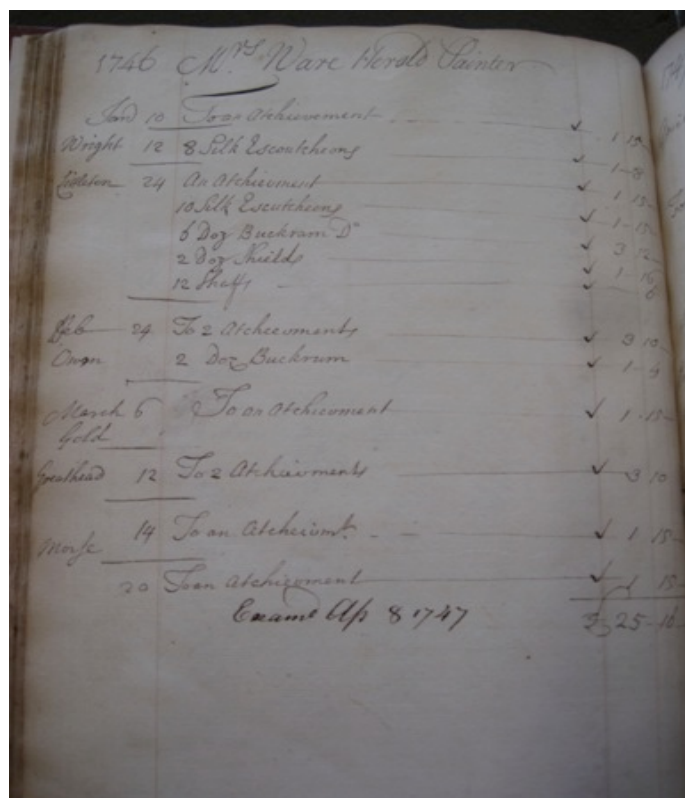 1746 Mrs Ware Herald Painter
Jan 10 To an Atchievement 1 15
Wright 12 8 Silk Escoutcheons 1-8
24 An Atchievment 1 15
10 Silk Escutcheons 1-15
6 Doz Buckram Do 3 12
2 Doz Shields 1-16
12 6
Feb 24 To 2 Atcheivments 3 10
Owen 2 Doz Buckrum 1-4
March 6 To an Atchievment 1-15
Gold
Greathead 12 To 2 Atchievments 3 10
14 To an Atcheivmt. 1 15
Morse
20 To an Atchievment 1 15
Examd Ap 8 1747 25-16